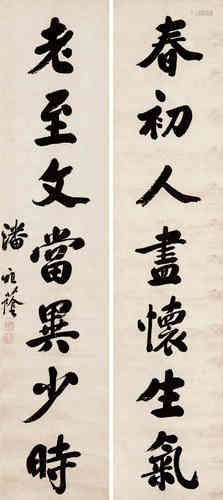 春初人盡懷生氣
老至文當異少時
潘祖蔭